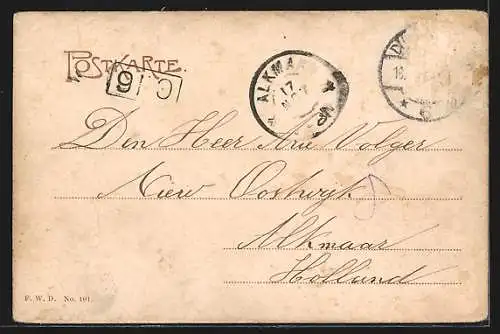 POSTKARTE.
9 C
ALKMAAR
17
Den Heer Arie Volger
Nieuw Oostwyk
Alkmaar
Holland
F. W. D. No. 101.